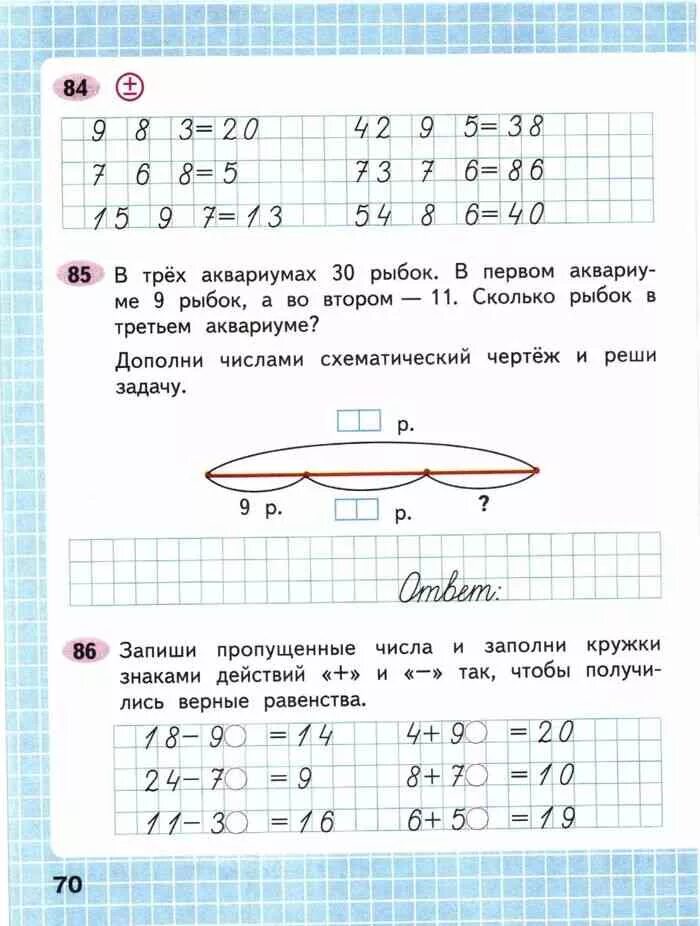 84 ±
9 8 3=20 42 9 5=38
7 6 8=5 73 7 6=86
15 9 7=13 54 8 6=40
85 В трёх аквариумах 30 рыбок. В первом аквариу-
ме 9 рыбок, а во втором — 11. Сколько рыбок в
третьем аквариуме?
Дополни числами схематический чертёж и реши
задачу.
р.
9 р. р. ?
Ответ:
86 Запиши пропущенные числа и заполни кружки
знаками действий «+» и «−» так, чтобы получи-
лись верные равенства.
18−9 =14 4+9 =20
24−7 =9 8+7 =10
11−3 =16 6+5 =19
70